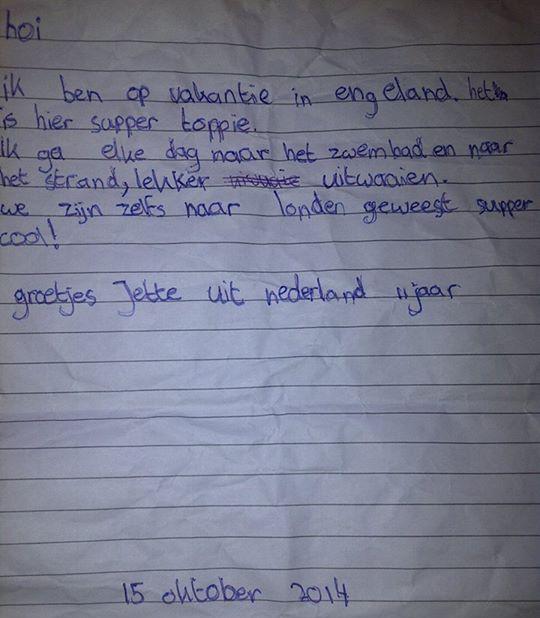 hoi
ik ben op vakantie in engeland. het
is hier supper toppie.
ik ga elke dag naar het zwembad en naar
het strand, lekker uitwaaien.
we zijn zelfs naar londen geweest supper
cool!
groetjes Jette uit nederland 11 jaar
15 oktober 2014